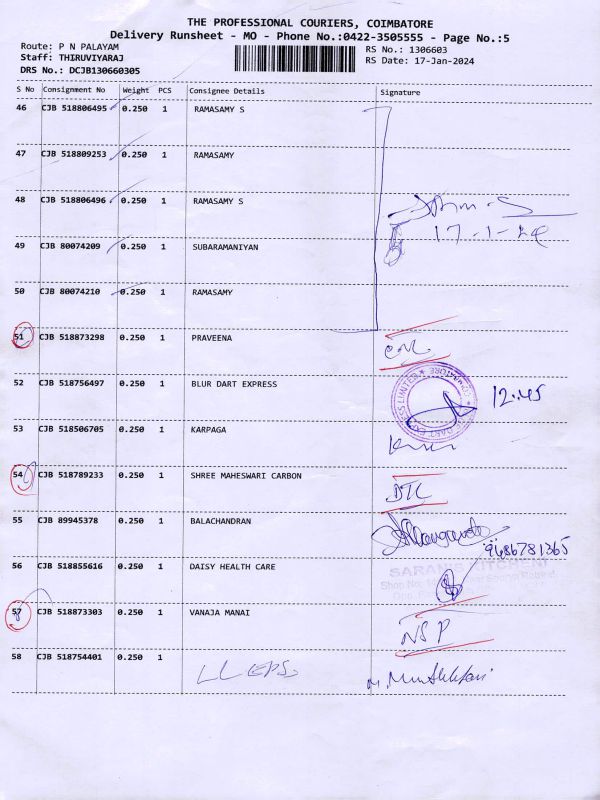 THE PROFESSIONAL COURIERS, COIMBATORE
Delivery Runsheet - MO - Phone No.:0422-3505555 - Page No.:5
Route: P N PALAYAM RS No.: 1306603
Staff: THIRUVIYARAJ RS Date: 17-Jan-2024
DRS No.: DCJB130660305
S No Consignment No Weight PCS Consignee Details Signature
46 CJB 518806495 0.250 1 RAMASAMY S
47 CJB 518809253 0.250 1 RAMASAMY
48 CJB 518806496 0.250 1 RAMASAMY S
17-1-24
49 CJB 80074209 0.250 1 SUBARAMANIYAN
50 CJB 80074210 0.250 1 RAMASAMY
51 CJB 518873298 0.250 1 PRAVEENA
52 CJB 518756497 0.250 1 BLUR DART EXPRESS 12.45
53 CJB 518506705 0.250 1 KARPAGA
54 CJB 518789233 0.250 1 SHREE MAHESWARI CARBON DTC
55 CJB 89945378 0.250 1 BALACHANDRAN
9686781365
56 CJB 518855616 0.250 1 DAISY HEALTH CARE
57 CJB 518873303 0.250 1 VANAJA MANAI NSP
58 CJB 518754401 0.250 1